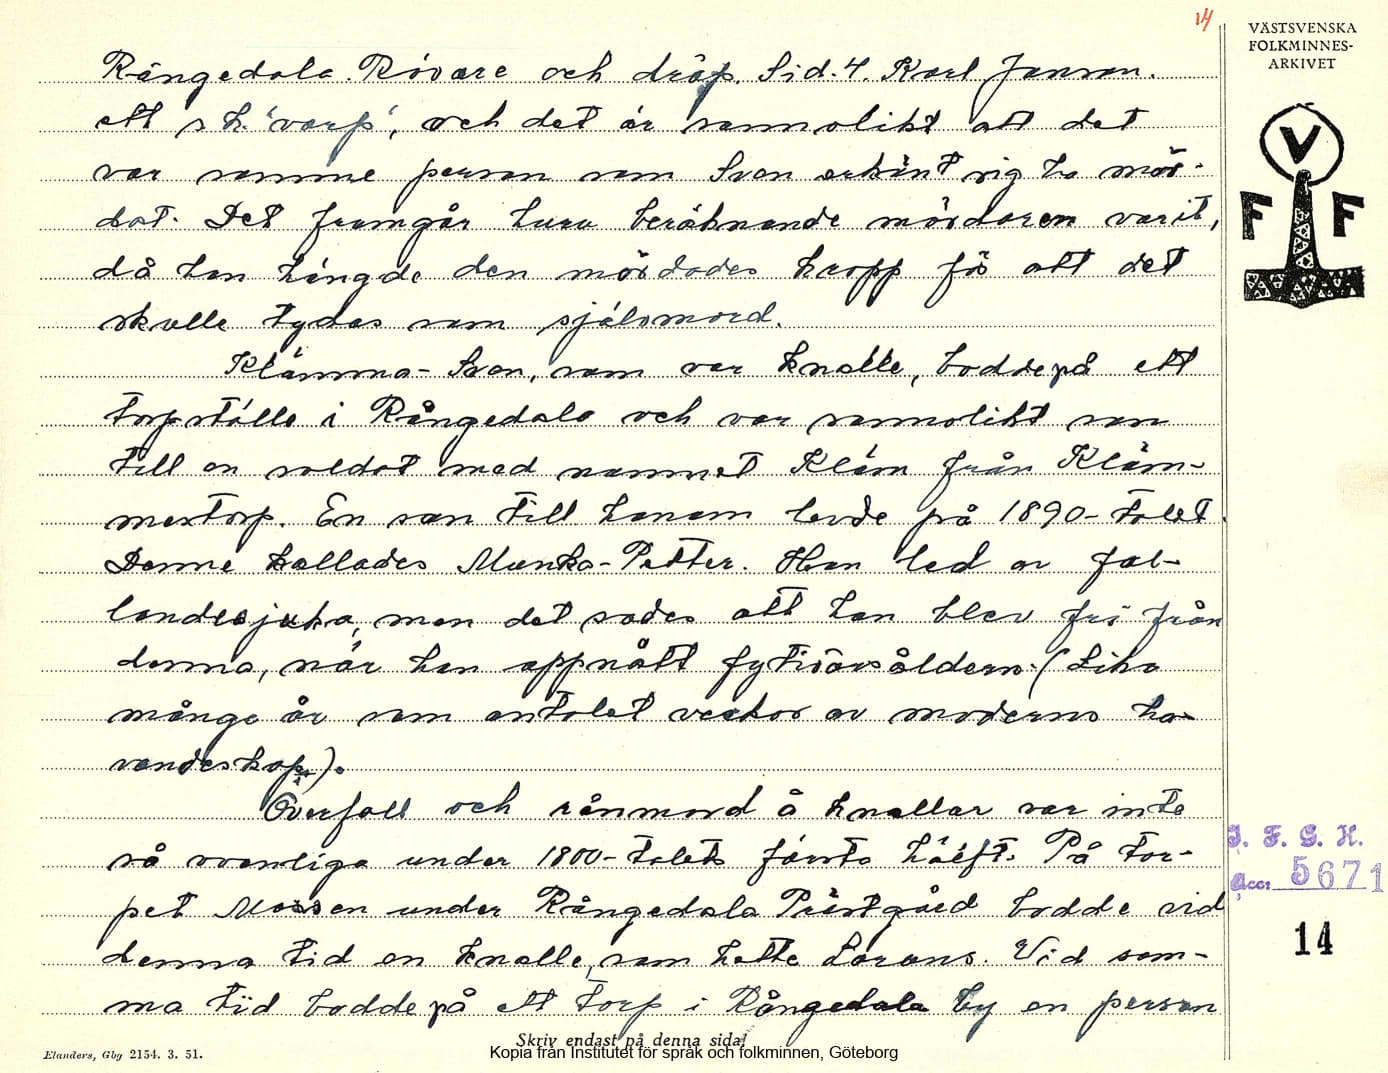 14
VÄSTSVENSKA
FOLKMINNES-
ARKIVET
Rångedala. Rövare och dråp. Sid. 4. Karl Janson.
ett s.k. 'varp', och det är sannolikt att det
var samme person som Sven erkänt sig ha mör-
dat. Det framgår huru beräknande mördaren varit,
då han hängde den mördades kropp för att det
skulle tydas som själsmord.
Klämma-Sven, som var knalle, bodde på ett
torpställe i Rångedala och var sannolikt son
till en soldat med namnet Kläm från Kläm-
mestorp. En son till honom levde på 1890-talet.
Denne kallades Munka-Petter. Han led av fal-
landesjuka, men det sades att han blev fri från
denna, när han uppnått fyrtioårsåldern. (Lika
många år som antalet veckor av moderns ha-
vandeskap).
Överfall och rånmord å knallar var inte
så ovanliga under 1800-talets första hälft. På tor-
pet Mossen under Rångedala Prästgård bodde vid
denna tid en knalle, som hette Larans. Vid sam-
ma tid bodde på ett torp i Rångedala by en person
V
F F
I. F. G. H.
Acc: 5671
14
Skriv endast på denna sida!
Elanders, Gbg 2154. 3. 51.
Kopia från Institutet för språk och folkminnen, Göteborg